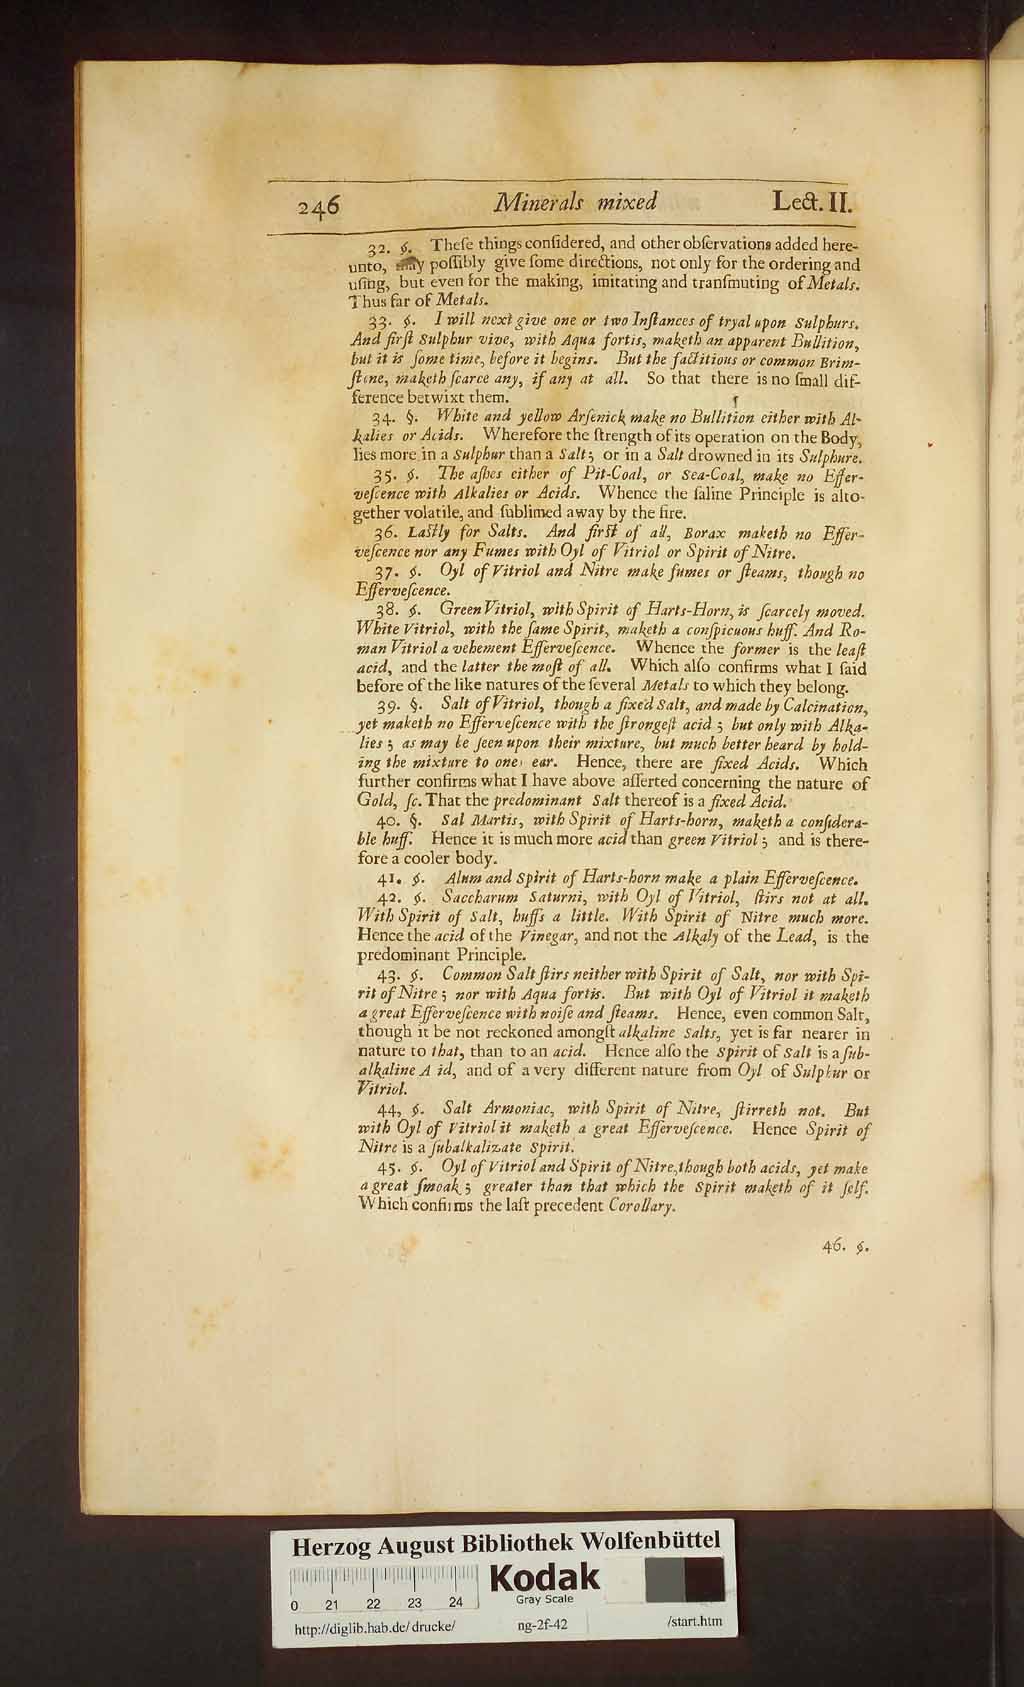 246 Minerals mixed Lect. II.
32. §. Theſe things conſidered, and other obſervations added here-
unto, may poſſibly give ſome directions, not only for the ordering and
uſing, but even for the making, imitating and tranſmuting of Metals.
Thus far of Metals.
33. §. I will next give one or two Inſtances of tryal upon Sulphurs.
And firſt Sulphur vive, with Aqua fortis, maketh an apparent Bullition,
but it is ſome time, before it begins. But the factitious or common Brim-
ſtone, maketh ſcarce any, if any at all. So that there is no ſmall dif-
ference betwixt them.
34. §. White and yellow Arſenick make no Bullition either with Al-
kalies or Acids. Wherefore the ſtrength of its operation on the Body,
lies more in a Sulphur than a Salt; or in a Salt drowned in its Sulphure.
35. §. The aſhes either of Pit-Coal, or Sea-Coal, make no Effer-
veſcence with Alkalies or Acids. Whence the ſaline Principle is alto-
gether volatile, and ſublimed away by the fire.
36. Laſtly for Salts. And firſt of all, Borax maketh no Effer-
veſcence nor any Fumes with Oyl of Vitriol or Spirit of Nitre.
37. §. Oyl of Vitriol and Nitre make fumes or ſteams, though no
Efferveſcence.
38. §. Green Vitriol, with Spirit of Harts-Horn, is ſcarcely moved.
White Vitriol, with the ſame Spirit, maketh a conſpicuous huff. And Ro-
man Vitriol a vehement Efferveſcence. Whence the former is the leaſt
acid, and the latter the moſt of all. Which alſo confirms what I ſaid
before of the like natures of the ſeveral Metals to which they belong.
39. §. Salt of Vitriol, though a fixed Salt, and made by Calcination,
yet maketh no Efferveſcence with the ſtrongeſt acid; but only with Alka-
lies; as may be ſeen upon their mixture, but much better heard by hold-
ing the mixture to one, ear. Hence, there are fixed Acids. Which
further confirms what I have above aſſerted concerning the nature of
Gold, ſc. That the predominant Salt thereof is a fixed Acid.
40. §. Sal Martis, with Spirit of Harts-horn, maketh a conſidera-
ble huff. Hence it is much more acid than green Vitriol; and is there-
fore a cooler body.
41. §. Alum and Spirit of Harts-horn make a plain Efferveſcence.
42. §. Saccharum Saturni, with Oyl of Vitriol, ſtirs not at all.
With Spirit of Salt, huffs a little. With Spirit of Nitre much more.
Hence the acid of the Vinegar, and not the Alkaly of the Lead, is the
predominant Principle.
43. §. Common Salt ſtirs neither with Spirit of Salt, nor with Spi-
rit of Nitre; nor with Aqua fortis. But with Oyl of Vitriol it maketh
a great Efferveſcence with noiſe and ſteams. Hence, even common Salt,
though it be not reckoned amongſt alkaline Salts, yet is far nearer in
nature to that, than to an acid. Hence alſo the Spirit of Salt is a ſub-
alkaline A id, and of a very different nature from Oyl of Sulphur or
Vitriol.
44, §. Salt Armoniac, with Spirit of Nitre, ſtirreth not. But
with Oyl of Vitriol it maketh a great Efferveſcence. Hence Spirit of
Nitre is a ſubalkalizate Spirit.
45. §. Oyl of Vitriol and Spirit of Nitre, though both acids, yet make
a great ſmoak; greater than that which the Spirit maketh of it ſelf.
Which confirms the laſt precedent Corollary.
46. §.
Herzog August Bibliothek Wolfenbüttel
Kodak
Gray Scale
0 21 22 23 24
http://diglib.hab.de/drucke/ ng-2f-42 /start.htm